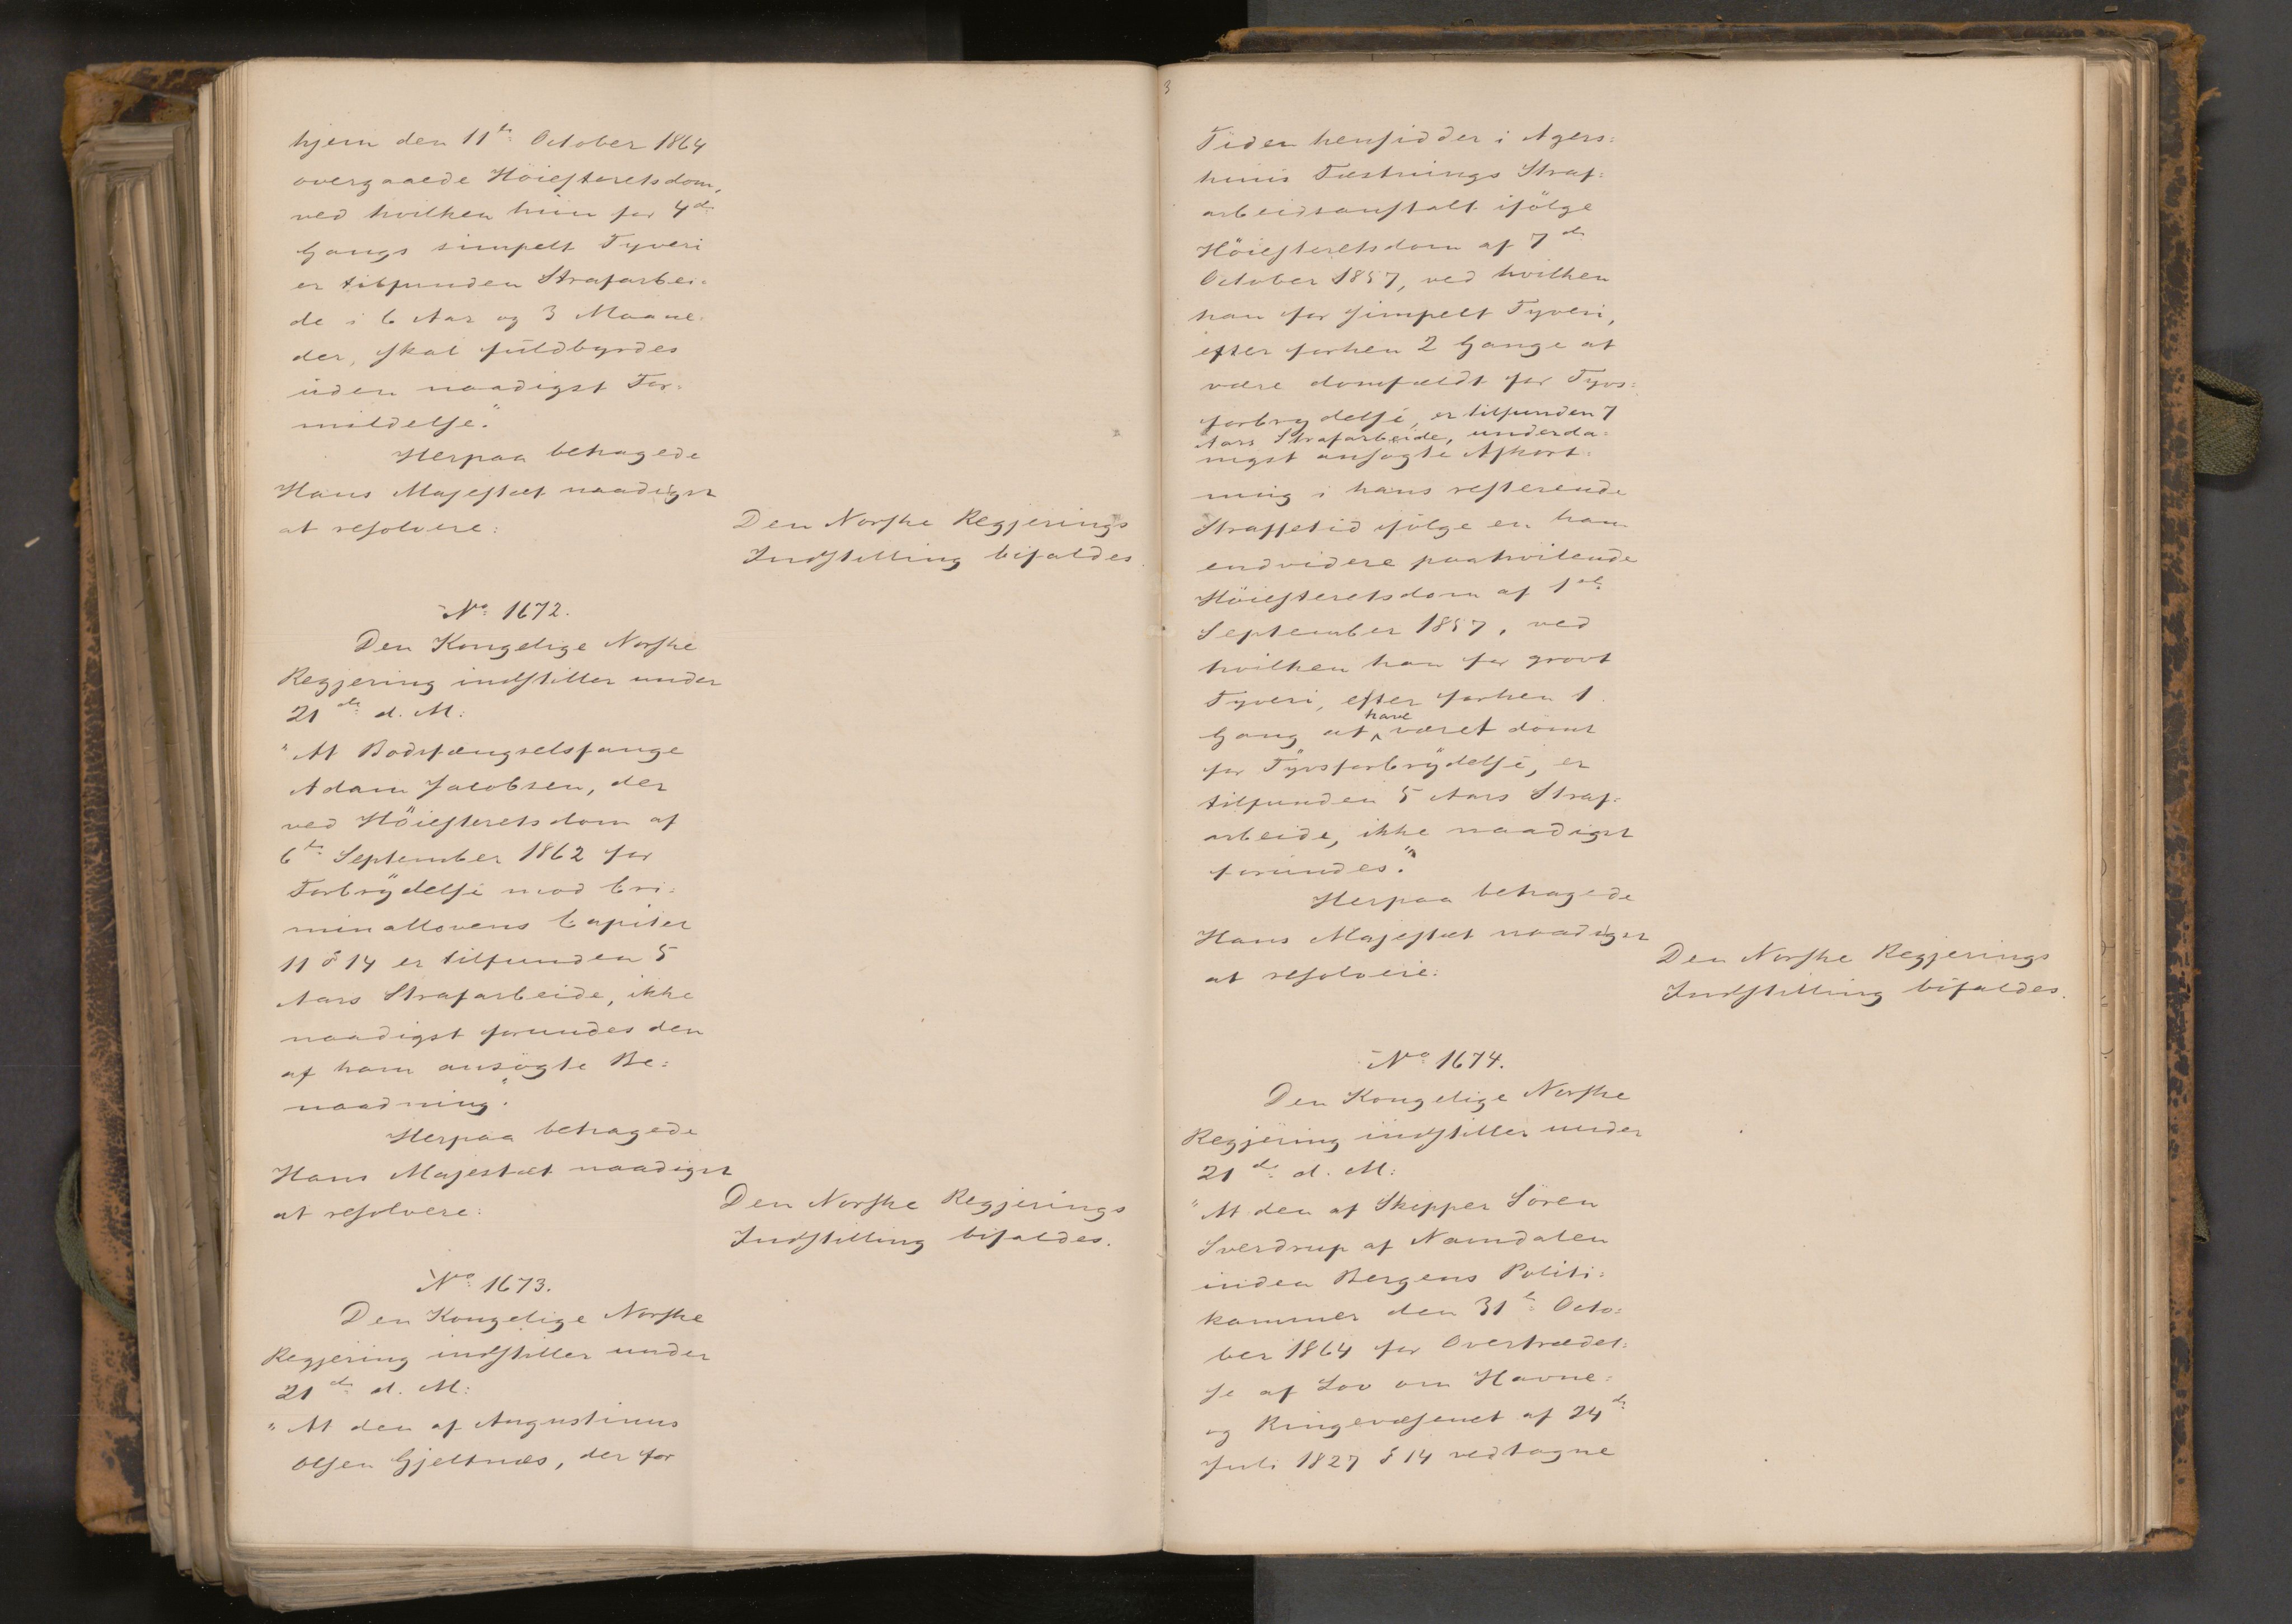 hjem den 11te October 1864
overgaaede Höiesteretsdom,
ved hvilken hun for 4de
Gangs simpelt Tyveri
er tilfunden Strafarbei=
de i 6 Aar og 3 Maane=
der, skal fuldbyrdes
uden naadigst For=
mildelse."
Herpaa behagede
Hans Majestæt naadigst
at resolvere:
Den Norske Regjerings
Indstilling bifaldes.
No 1672.
Den Kongelige Norske
Regjering indstiller under
21de d. M:
"At Bodsfængselsfange
Adam Jacobsen, der
ved Höiesteretsdom af
6te September 1862 for
Forbrydelse mod Cri=
minallovens Capitel
11 § 14 er tilfunden 5
Aars Strafarbeide, ikke
naadigst forundes den
af ham ansögte Be=
naadning."
Herpaa behagede
Hans Majestæt naadigst
at resolvere:
Den Norske Regjerings
Indstilling bifaldes.
No 1673.
Den Kongelige Norske
Regjering indstiller under
21de d. M:
"At den af Augustinus
Olsen Gjeltnæs, der for
3
Tiden hensidder i Agers=
huus Fæstnings Straf=
arbeidsanstalt ifölge
Höiesteretsdom af 7de
October 1857, ved hvilken
han for simpelt Tyveri,
efter forhen 2 Gange at
være domfældt for Tyvs=
forbrydelse, er tilfunden 7
Aars Strafarbeide, underda=
nigst ansøgte Afkort=
ning i hans resterende
Straffetid ifölge en ham
endvidere paahvilende
Höiesteretsdom af 1ste
September 1857, ved
hvilken han for grovt
Tyveri, efter forhen 1
Gang at have været dömt
for Tyvsforbrydelse, er
tilfunden 5 Aars Straf=
arbeide, ikke naadigst
forundes."
Herpaa behagede
Hans Majestæt naadigst
at resolvere:
Den Norske Regjerings
Indstilling bifaldes.
No 1674.
Den Kongelige Norske
Regjering indstiller under
21de d. M:
"At den af Skipper Sören
Sverdrup af Namdalen
inden Bergens Politi=
kammer den 31te Octo=
ber 1864 for Overtrædel=
se af Lov om Havne=
og Ringevæsenet af 24de
Juli 1827 § 14 vedtagne